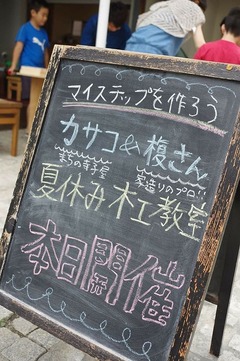 マイステップを作ろう
カサコ&榎さん
まちの寺子屋 家造りのプロ!!
夏休み木工教室
本日開催